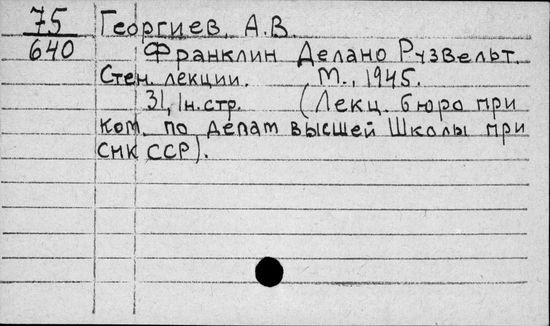 75 Георгиев, А.В.
640 Франклин Делано Рузвельт.
Стен. лекции. М., 1945.
31, 1н. стр. (Лекц. бюро при
ком. по делам высшей Школы при
СНК СССР).